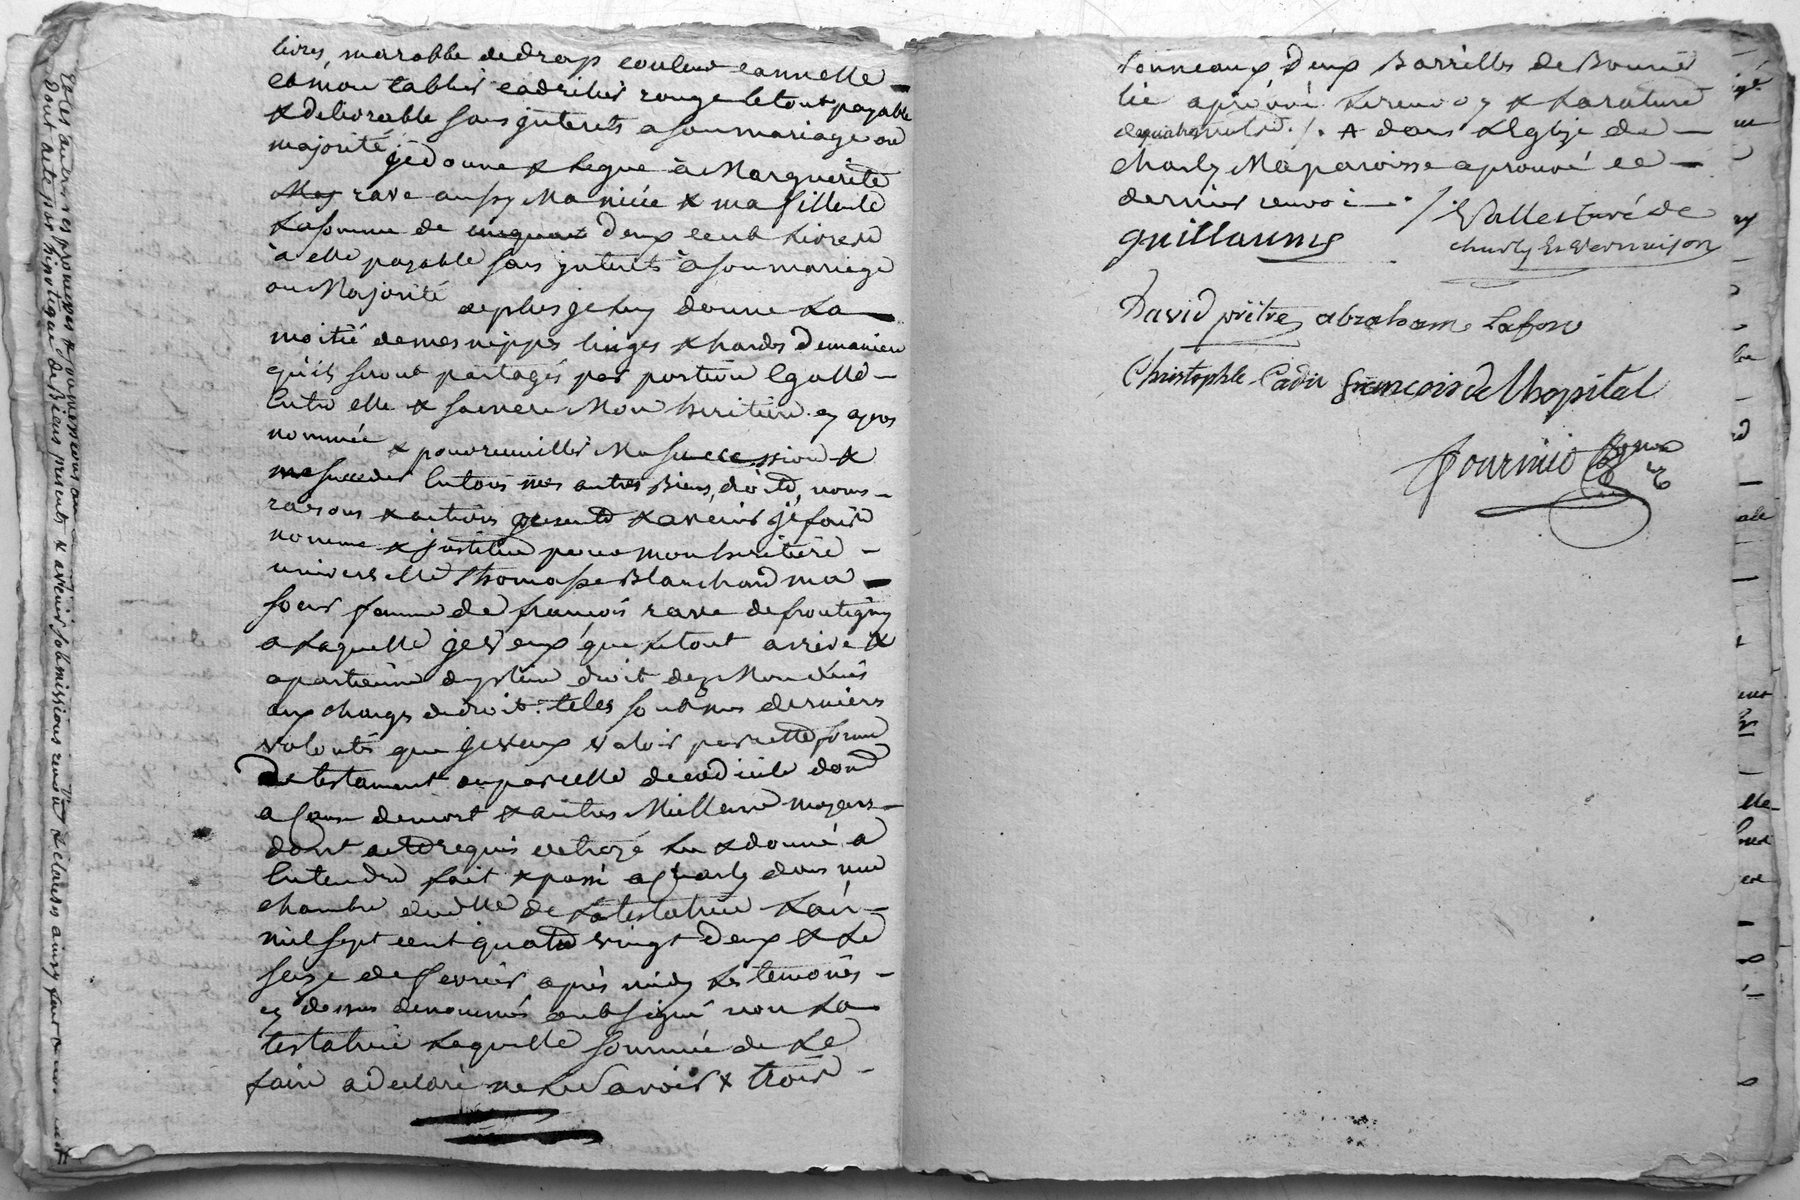 livres, marobbe de drap couleur cannelle
et mon tablier cadrilier rouge le tout payable
& delivrable sans jnterets a son mariage ou
majorité. je donne & legue à Marguerite
rave aussy Ma niéce & ma filleule
La somme de cinquant deux cent Livres
à elle payable sans jnterets à son mariage
ou Majorité de plus je luy donne La
moitié de mes nippes linges & hardes de maniere
qu'ils seront partagés par portion Egalle
Entre elle & sa mere Mon heritiere cy apres
nommée & pour recuillir Ma succession &
me succeder En tous mes autres Biens, droits, noms
raisons & actions presents & avenir je fais
nomme & jnstitue pour mon heritiere
universelle Thomasse Blanchard ma
soeur femme de françois rave de frontigny
a Laquelle je veux que Le tout arrive &
apartienne de plein droit dez Mon décès
aux charges de droit. telles sont mes dernieres
volontés que je veux valoir par cette forme
de testament ou par celle de codicile donnd
a Cause de mort & autres Meilleurs moyens
dont acte requis octroyé Lu & donné a
Entendre fait & passé a Charly dans une
chambre de Laditte testatrice L'an
mil sept cent quatre vingt Deux & Le
seize de fevrier après midy Les temoins
cy dessus denommés ont signé non La
testatrice Laquelle sommée de Le
faire a declaré ne Le Savoir & trois
tonneaux, deux Barrilles de Bonne
lie aprouvé Le renvoy & La rature
A dans L'Eglize de
charly Ma paroisse aprouvé ce
dernier renvoi
guillaume
Valles Curé de
charly Et Vernaison
David prêtre abraham Lafon
Christophle Cadie françois de lhopital
fournie